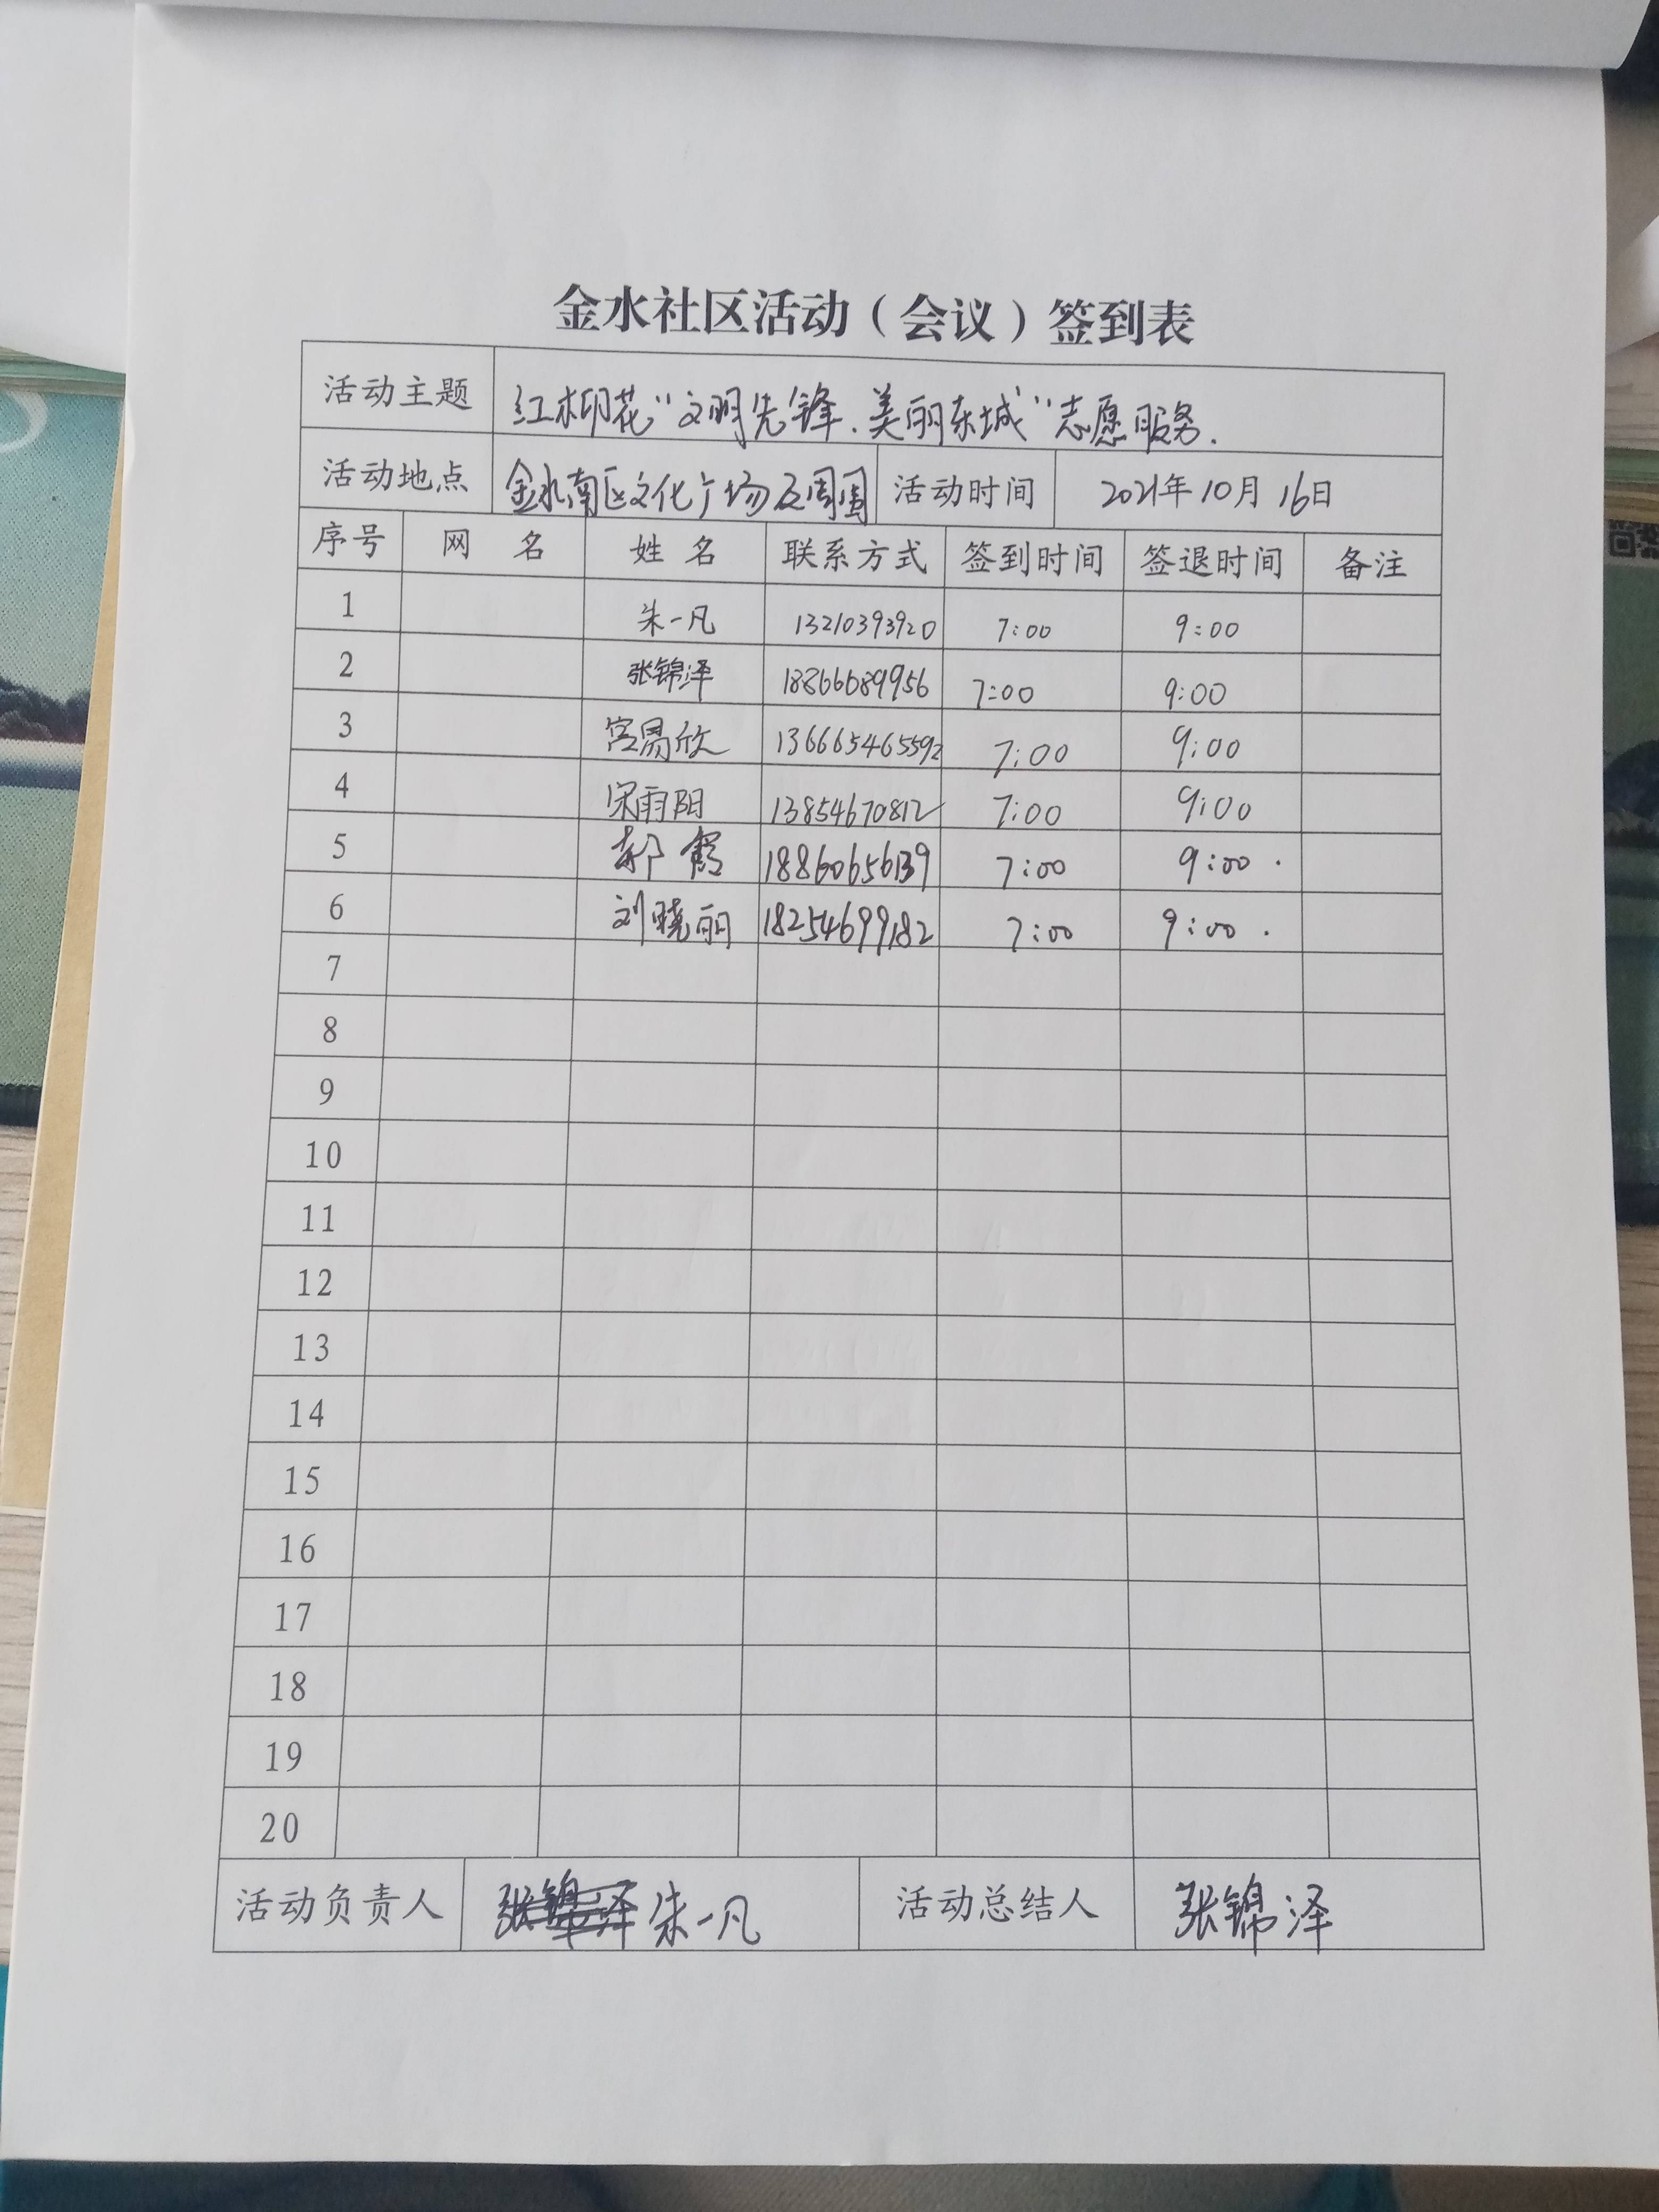 金水社区活动（会议）签到表
活动主题 红柳花“文明先锋.美丽东城”志愿服务.
活动地点 金水南区文化广场及周围 活动时间 2021年10月16日
序号 网 名 姓 名 联系方式 签到时间 签退时间 备注
1 朱一凡 13210393920 7:00 9:00
2 张锦泽 18866689956 7:00 9:00
3 宫易欣 136665465592 7:00 9:00
4 宋雨阳 13854670812 7:00 9:00
5 郝鹤 18860656139 7:00 9:00.
6 刘晓丽 18254699182 7:00 9:00.
7
8
9
10
11
12
13
14
15
16
17
18
19
20
活动负责人 朱一凡 活动总结人 张锦泽